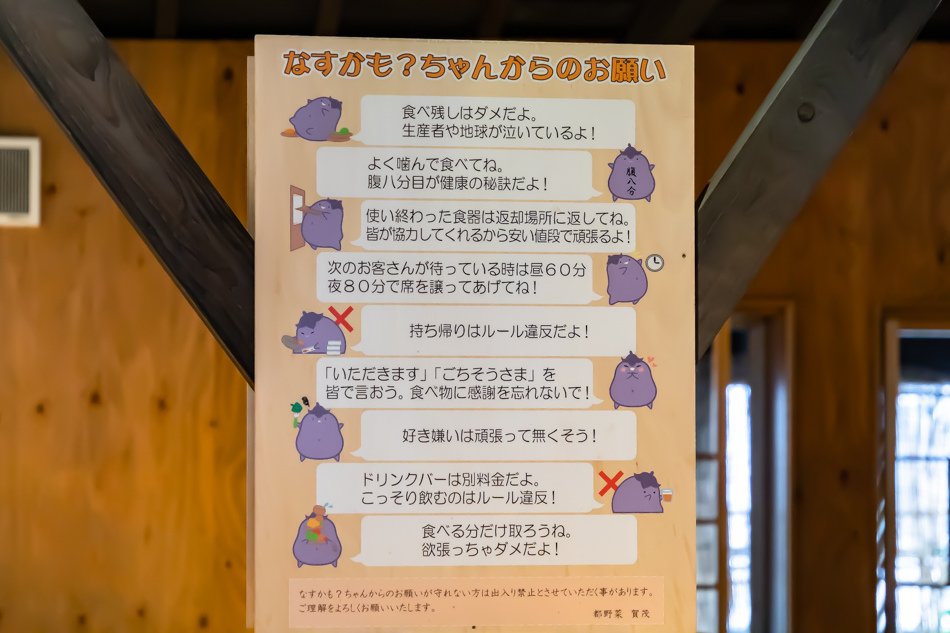 なすかも？ちゃんからのお願い
食べ残しはダメだよ。
生産者や地球が泣いているよ！
よく噛んで食べてね。
腹八分目が健康の秘訣だよ！
腹八分
使い終わった食器は返却場所に返してね。
皆が協力してくれるから安い値段で頑張るよ！
次のお客さんが待っている時は昼６０分
夜８０分で席を譲ってあげてね！
持ち帰りはルール違反だよ！
「いただきます」「ごちそうさま」を
皆で言おう。食べ物に感謝を忘れないで！
好き嫌いは頑張って無くそう！
ドリンクバーは別料金だよ。
こっそり飲むのはルール違反！
食べる分だけ取ろうね。
欲張っちゃダメだよ！
なすかも？ちゃんからのお願いが守れない方は出入り禁止とさせていただく事があります。
ご理解をよろしくお願いいたします。
都野菜 賀茂